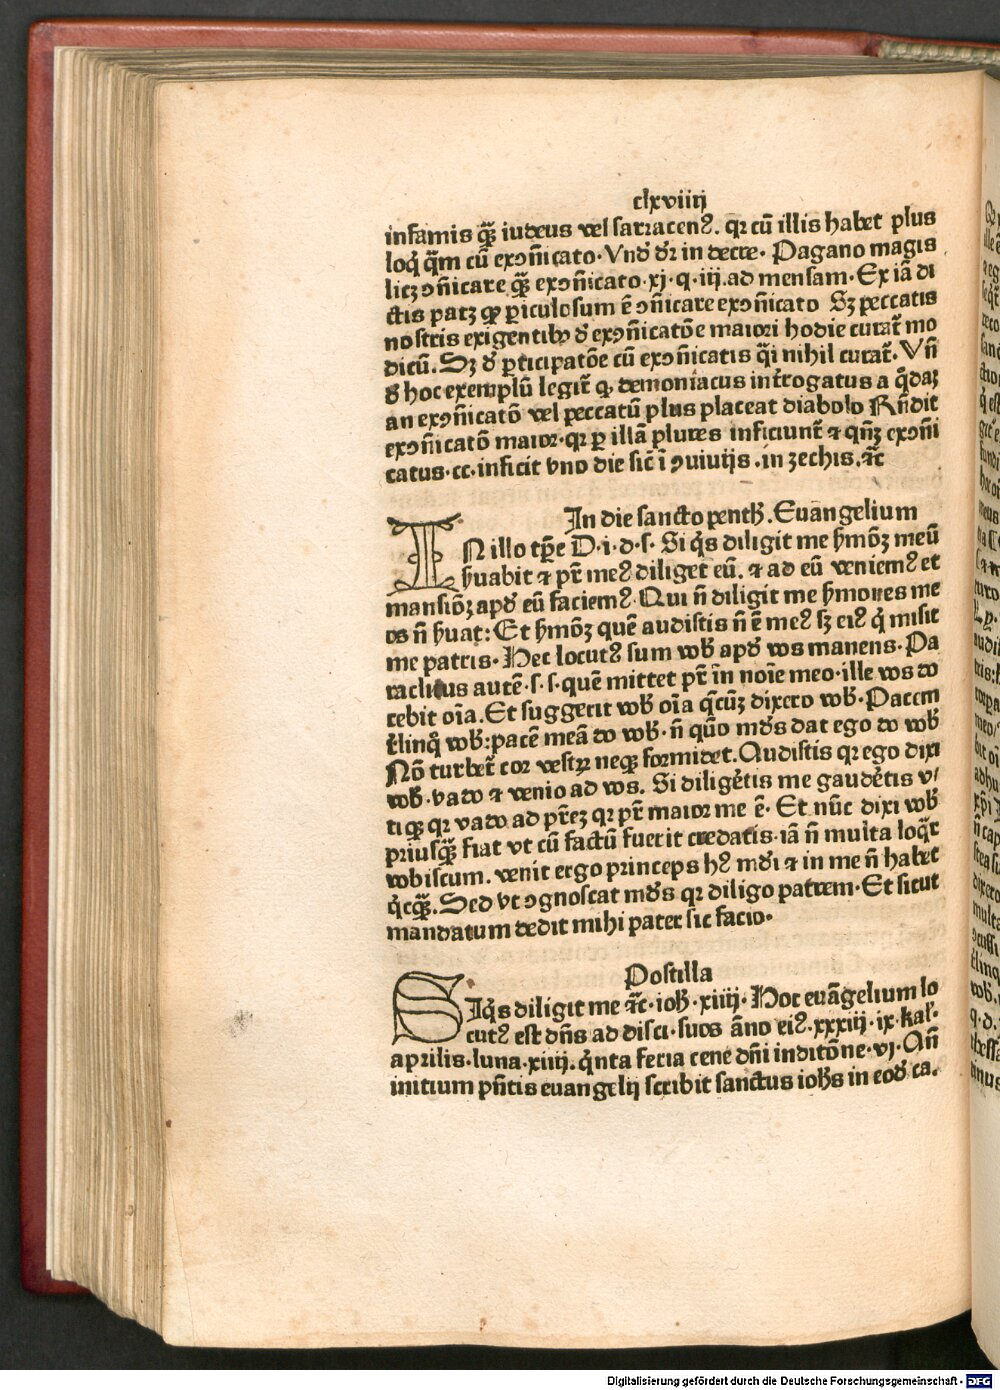 clxviiij
infamis q̃ʒ iudeus vel sarracenꝰ. qꝛ cũ illis habet plus
loq̃ q̃m cũ exꝯñicato·Vnď ďr in decre· Pagano magis
licʒ ꝯñicare q̃ʒ exꝯñicato·xj·q·iij.ad mensam·Ex iã di
ctis patʒ ꝙ ꝑiculosum ẽ ꝯñicare exꝯñicato Sʒ peccatis
nostris exigentibꝰ ď exꝯñicatõe maiori hodie curat̃ mo
dicũ. Sʒ ď ꝑticipatõe cũ exꝯñicatis q̃i nihil curat̃. Vñ
ď hoc exemplũ legit̃ ꝙ demoniacus int̃rogatus a q̃daʒ
an exꝯñicatõ vel peccatũ plus placeat diabolo Rñdit
exꝯñicatõ maior·qꝛ ꝑ illã plures inficiunt̃ ⁊ qñʒ exꝯñi
catus·cc.inficit vno die sic̃ ĩ ꝯuiuijs.in zechis.⁊c̃
In die sancto pentħ. Euangelium
IN illo tꝑe D·i·d·s· Si q̇s diligit me ẜmõʒ meũ
ẜuabit ⁊ pr̃ meꝰ diliget eũ. ⁊ ad eũ veniemꝰ et
mansiõʒ apď eũ faciemꝰ Qui ñ diligit me ẜmones me
os ñ ẜuat: Et ẜmõʒ quẽ audistis ñ ẽ meꝰ sʒ eiꝰ q̇ misit
me patris· Hec locutꝰ sum vob̃ apď vos manens· Pa
raclitus autẽ·s·s·quẽ mittet pr̃ in noĩe meo·ille vos do
cebit oĩa. Et suggerit vob̃ oĩa q̃cũʒ dixero vob̃· Pacem
r̃linq̃ vob̃: pacẽ meã do vob̃·ñ quõ mďs dat ego do vob̃
Nõ turbet̃ cor vestꝝ neqʒ formidet. Audistis qꝛ ego dixi
vob̃·vado ⁊ venio ad vos. Si diliger̃tis me gauder̃tis v/
tiqʒ qꝛ vado ad pr̃eʒ qꝛ pr̃ maior me ẽ· Et nũc dixi vob̃
priusq̃ʒ fiat vt cũ factũ fuerit credatis·iã ñ multa loq̃r
vobiscum. venit ergo princeps hꝰ mďi ⁊ in me ñ habet
q̇cq̃ʒ. Sed vt ꝯgnoscat mďs qꝛ diligo patrem· Et sicut
mandatum dedit mihi pater sic facio·
Postilla
SIq̇s diligit me ⁊c̃·ioħ·xiiij· Hoc euãgelium lo
cutꝰ est dñs ad disci·suos ãno eiꝰ.xxxiij·ix·kal̃·
aprilis·luna·xiiij. q̇nta feria cene dñi inditõne·vj·Añ
initium pñtis euangelij scribit sanctus ioħs in eoď ca.
Digitalisierung gefördert durch die Deutsche Forschungsgemeinschaft - DFG